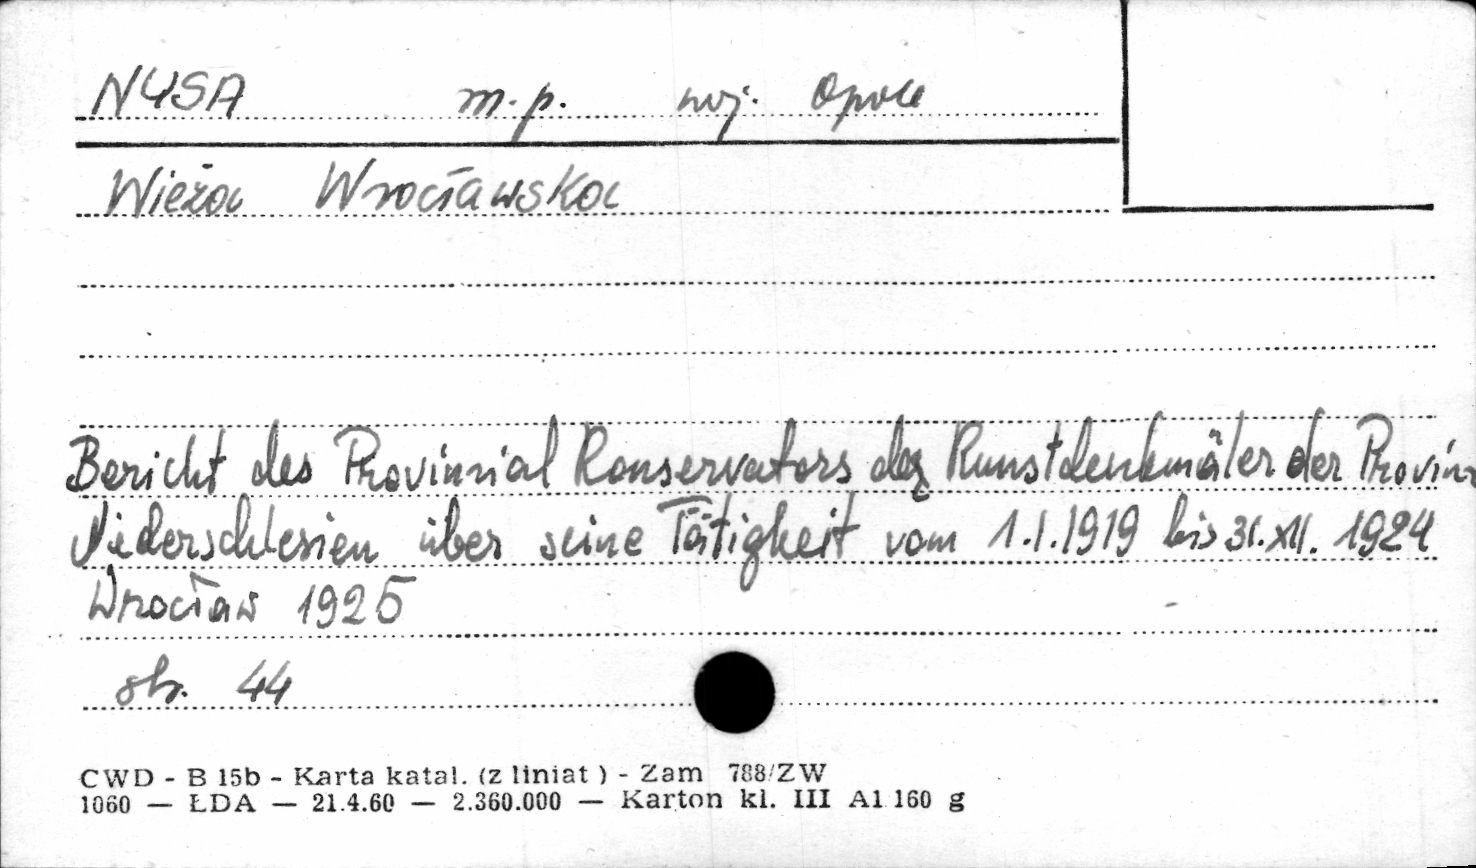 NYSA m.p. woj. Opole
Wieża Wrocławska
Bericht des Provinzial Konservators der Kunstdenkmäler der Provinz
Niederschlesien über seine Tätigkeit vom 1.I.1919 bis 31.XII. 1924
Wrocław 1925
str. 44
CWD - B 15b - Karta katal. (z liniat ) - Zam 788/ZW
1060 — ŁDA — 21.4.60 — 2.360.000 — Karton kl. III A1 160 g